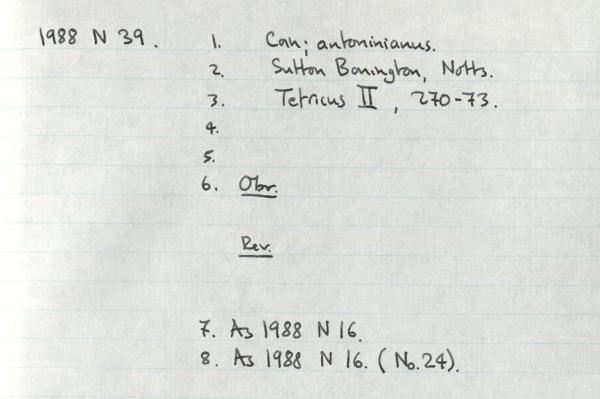 1988 N 39. 1. Coin; antoninianus.
2. Sutton Bonington, Notts.
3. Tetricus II, 270-73.
4.
5.
6. Obv.
Rev.
7. As 1988 N 16.
8. As 1988 N 16. (No. 24).